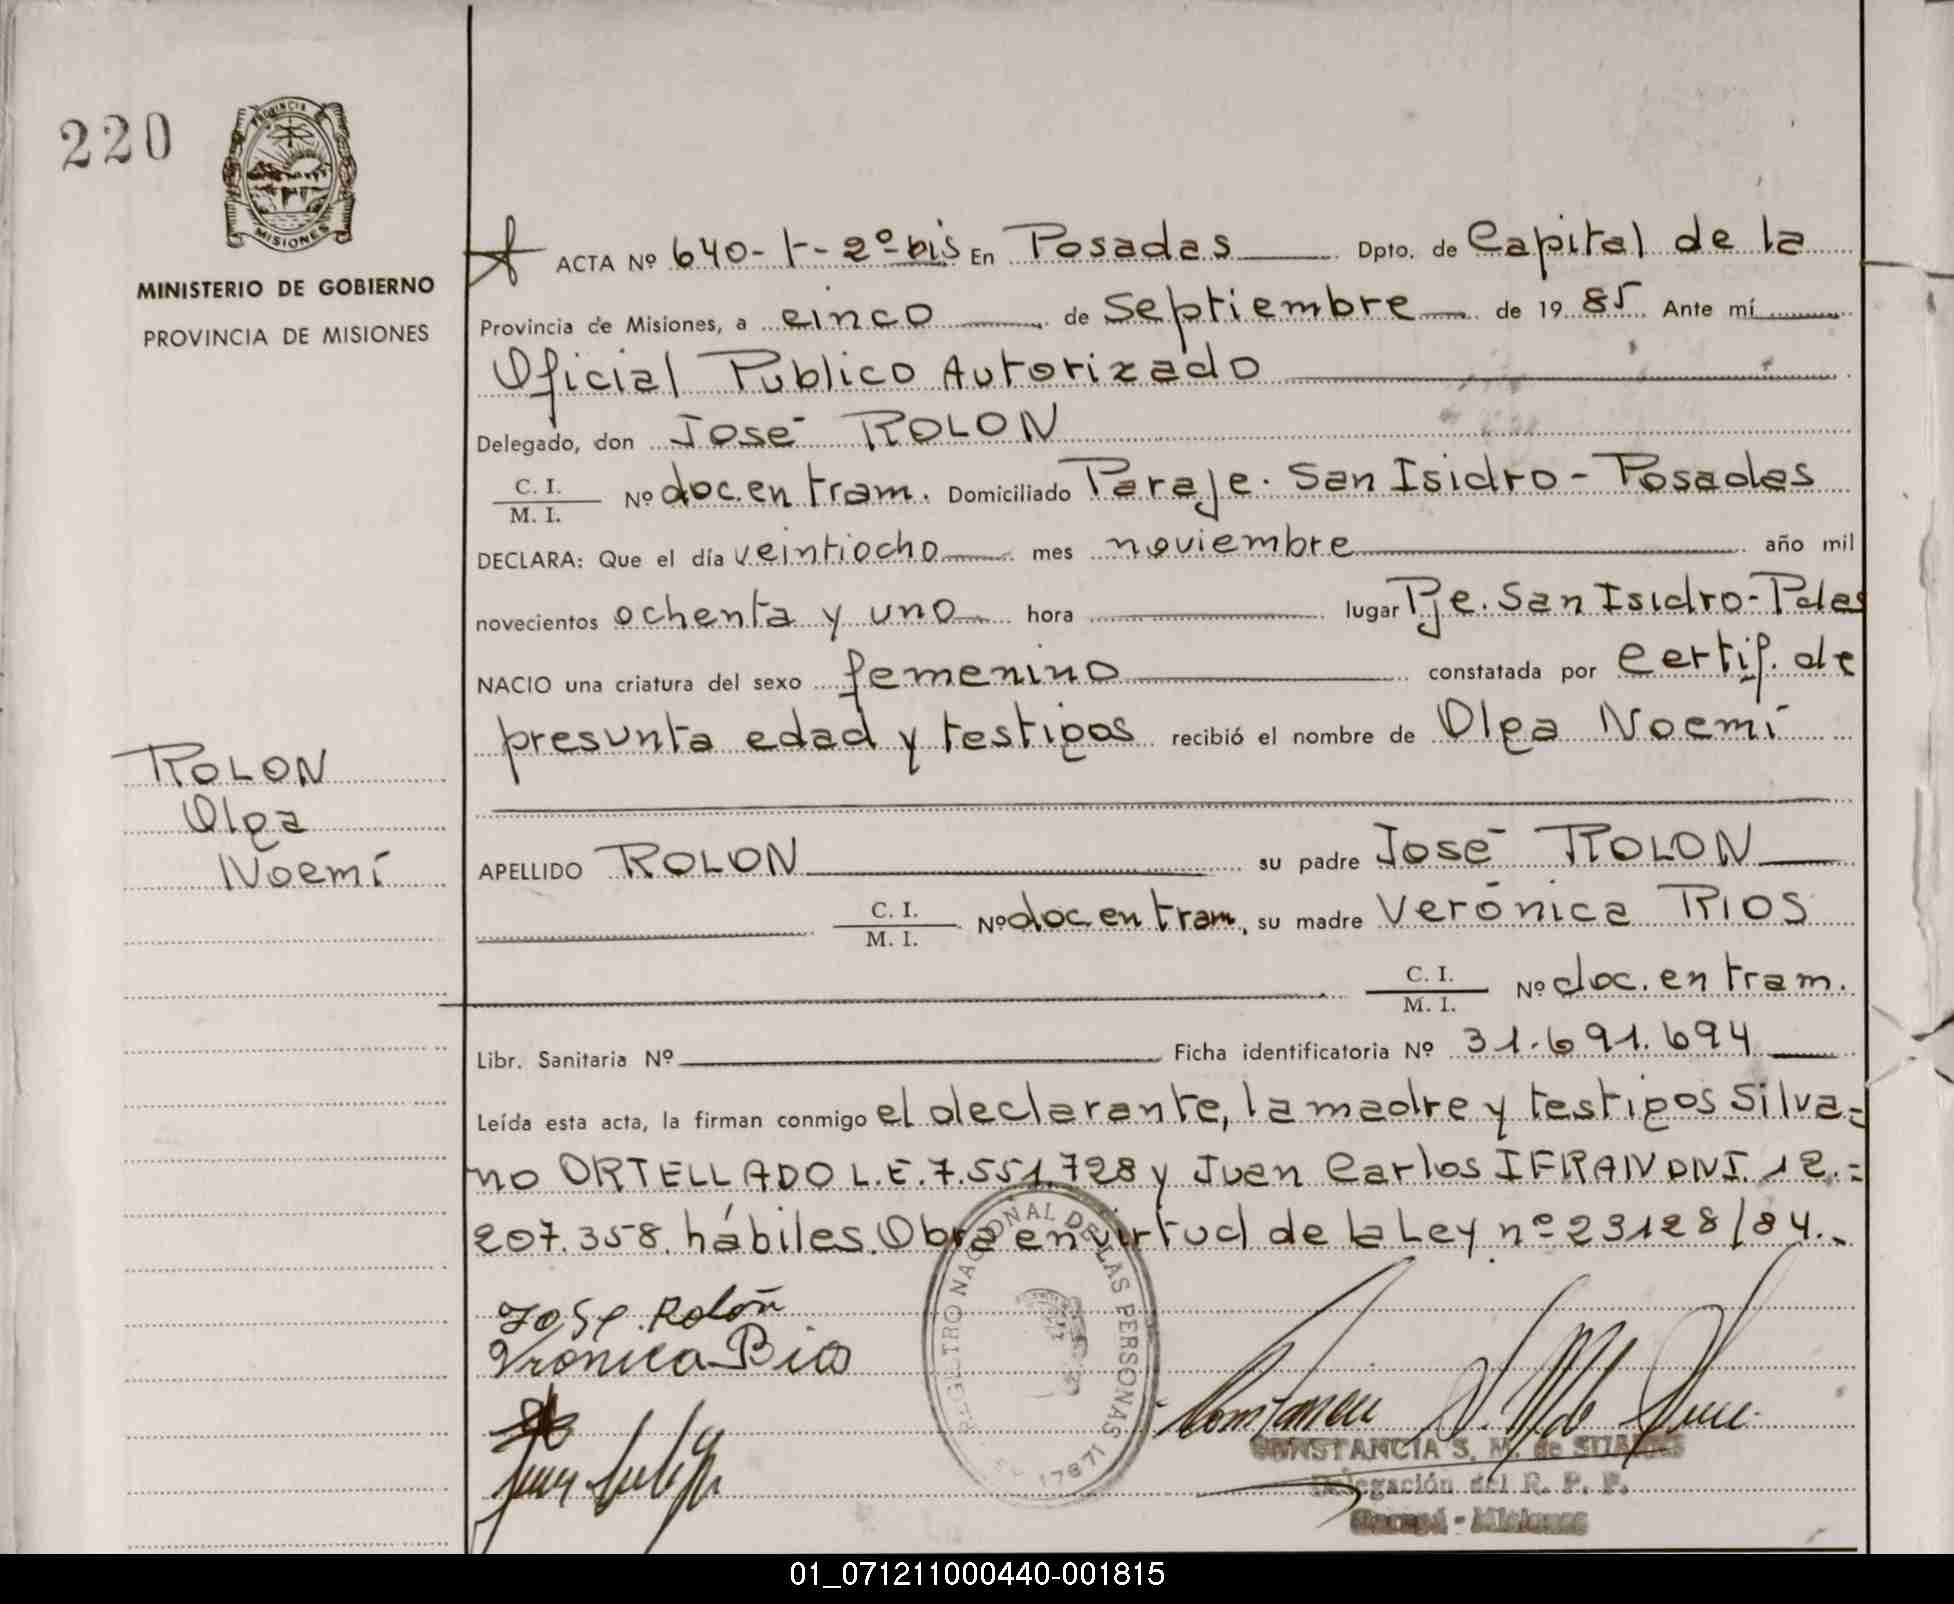 220
PROVINCIA
MISIONES
MINISTERIO DE GOBIERNO
PROVINCIA DE MISIONES
ACTA Nº 640-T-2º bis En Posadas Dpto. de Capital de la
Provincia de Misiones, a cinco de Septiembre de 1985 Ante mí
Oficial Público Autorizado
Delegado, don José ROLON
C. I.
M. I. Nº doc. en tram. Domiciliado Paraje. San Isidro - Posadas
DECLARA: Que el día veintiocho mes noviembre año mil
novecientos ochenta y uno hora lugar Pje. San Isidro-Pdas
NACIO una criatura del sexo femenino constatada por certif. de
presunta edad y testigos recibió el nombre de Olga Noemí
ROLON
Olga
Noemí
APELLIDO ROLON su padre José ROLON
C. I.
M. I. Nº doc en tram, su madre Verónica RIOS
C. I.
M. I. Nº doc. en tram.
Libr. Sanitaria Nº Ficha identificatoria Nº 31.691.694
Leída esta acta, la firman conmigo el declarante, la madre y testigos Silva=
no ORTELLADO L.E. 7.551.728 y Juan Carlos IFRAN DNI. 12.=
207.358. hábiles. Obra en virtud de la Ley nº 23128/84.-
José Rolón
Vronica Rios
REGISTRO NACIONAL DE LAS PERSONAS
CONSTANCIA S. M. de SUAREZ
Delegación del R. P. P.
Misiones
01_071211000440-001815